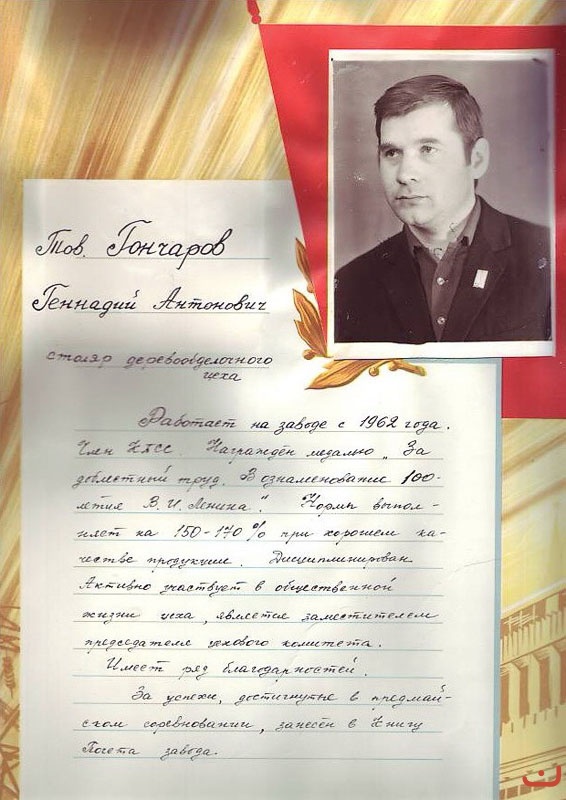 Тов. Гончаров
Геннадий Антонович
столяр деревообделочного
цеха
Работает на заводе с 1962 года.
Член КПСС. Награждён медалью „За
доблестный труд. В ознаменование 100-
летия В. И. Ленина“. Нормы выпол-
няет на 150-170% при хорошем ка-
честве продукции. Дисциплинирован.
Активно участвует в общественной
жизни цеха, является заместителем
председателя цехового комитета.
Имеет ряд благодарностей.
За успехи, достигнутые в предмай-
ском соревновании, занесён в Книгу
Почета завода.